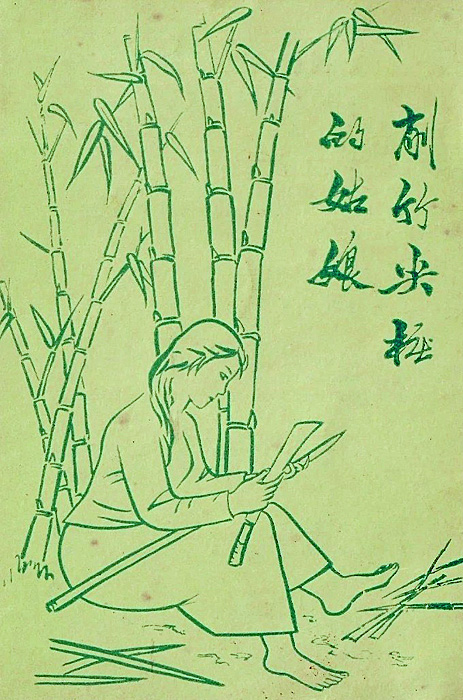 削竹尖桩
的姑娘